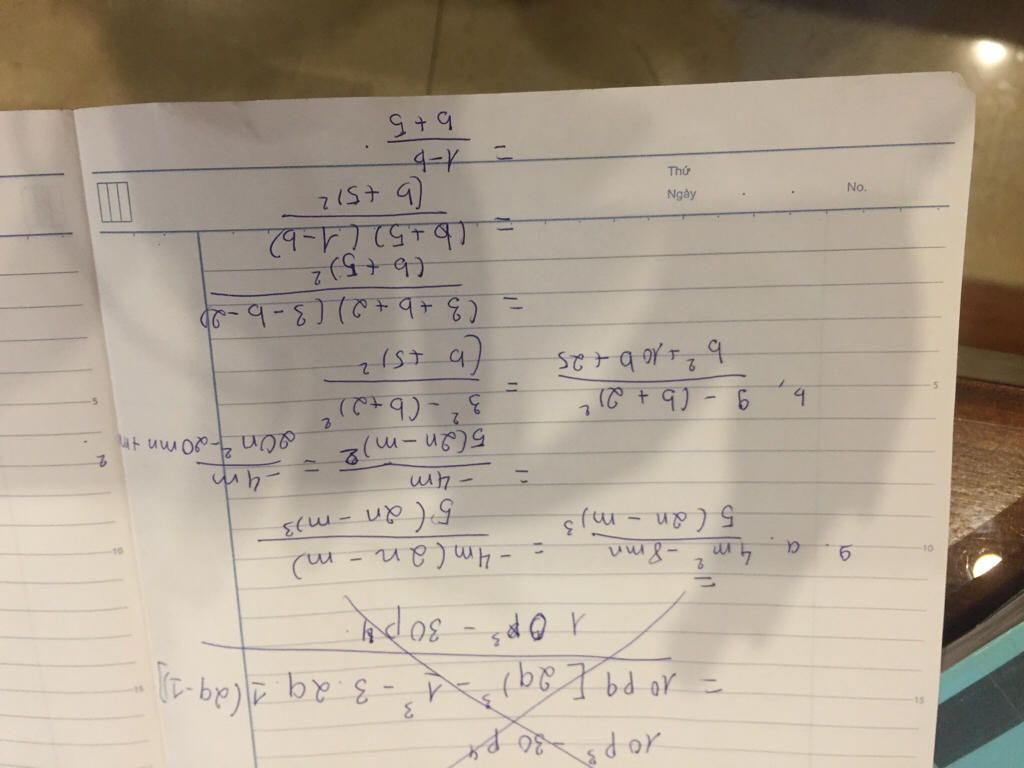 10p³ - 30p4
= 10pq[2q)³ - 1³ - 3.2q.1(2q-1)]
10p³ - 30p4
=
9. a. 4m² - 8mn = -4m(2n - m)
5(2n - m)³ 5(2n - m)³
= -4m = -4m
5(2n - m)2 20n² - 20mn + m
b, 9 - (b + 2)² = 3² - (b + 2)²
b² + 10b + 25 (b + 5)²
= (3 + b + 2)(3 - b - 2)
(b + 5)²
= (b + 5)(1 - b)
(b + 5)²
= 1 - b
b + 5
Thứ
Ngày . . No.
5
10
15
5
10
15